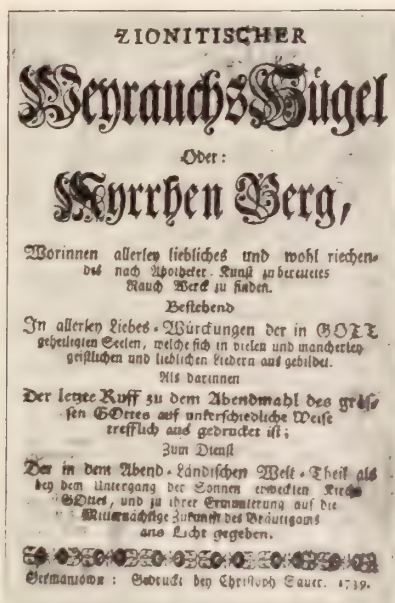 ZIONITISCHER
WeyrauchsHügel
Oder:
Myrrhen Berg,
Worinnen allerley liebliches und wohl riechen-
des nach Apotheker-Kunst zubereitetes
Rauch-Werck zu finden.
Bestehend
In allerley Liebes-Würckungen der in GOTT
geheiligten Seelen, welche sich in vielen und mancherley
geistlichen und lieblichen Liedern aus gebildet.
Als darinnen
Der letzte Ruff zu dem Abendmahl des gros-
sen GOttes auf unterschiedliche Weise
trefflich aus gedrucket ist;
Zum Dienst
Der in dem Abend-Ländischen Welt-Theil als
bey dem Untergang der Sonnen erweckten Kirche
GOttes, und zu ihrer Ermunterung auf die
Mitternächtige Zukunfft des Bräutigams
ans Licht gegeben.
Germantown: Gedruckt bey Christoph Sauer. 1739.